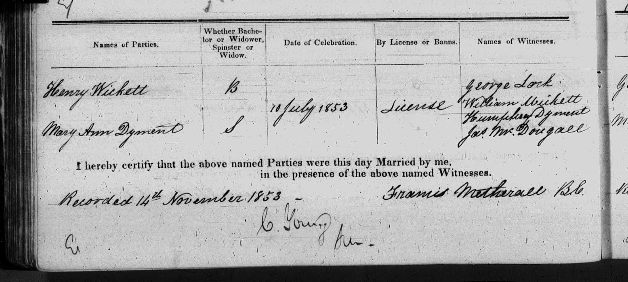 Names of Parties. Whether Bachelor or Widower, Spinster or Widow. Date of Celebration. By License or Banns. Names of Witnesses.
Henry Wickett B George Lock
10 July 1853 License William Wickett
Mary Ann Dyment S Humphrey Dyment
Jas Mc Dougall
I hereby certify that the above named Parties were this day Married by me,
in the presence of the above named Witnesses.
Recorded 14th November 1853 - Francis Metherall B.C.
C. Young